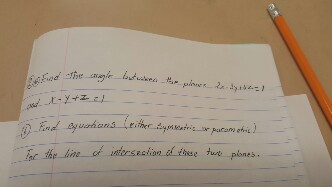 (a) Find the angle between the planes 2x-3y+4z=1
and x-y+z=1
(b) Find equations (either symmetric or parametric)
For the line of intersection of these two planes.